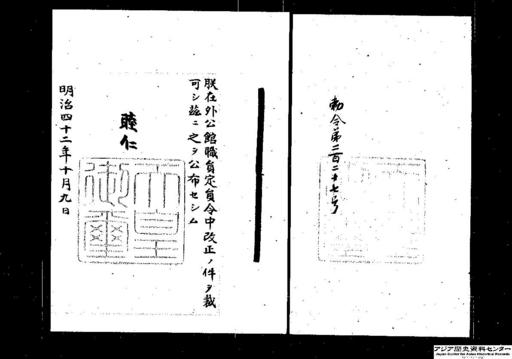 勅令第二百二十七号
朕在外公館職員定員令中改正ノ件ヲ裁
可シ茲ニ之ヲ公布セシム
睦仁
天皇
御璽
明治四十二年十月九日
アジア歴史資料センター
Japan Center for Asian Historical Records